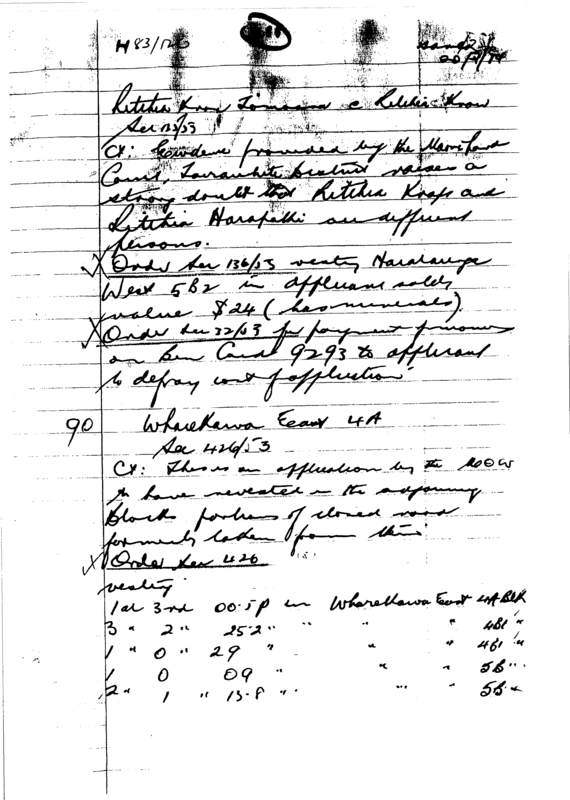 H 83/126
Sec 136/53
Ct: Evidence provided by the Maori Land
Court, District raises a
strong doubt that Ritihia and
Ritihia are different
persons.
Order Sec 136/53 vesting Hararaunga
West 5B2 in applicant solely
value $24 (has minerals).
Order Sec 32/53 for payment
on Ben Card 9293 to applicant
to defray cost of application
90 Wharekawa East 4A
Sec 426/53
Ct: This is an application by the MOW
to have revested in the adjoining
Blocks portions of closed road
formerly taken from them
Order Sec 426
vesting
1ac 3rd 00.5P in Wharekawa East 4A Blk
3 " 2 " 25.2 " " " " 4B1 "
1 " 0 " 29 " " " 4B1 "
1 0 09 " " " 5B "
2 " 1 " 15.8 " " " 5B "